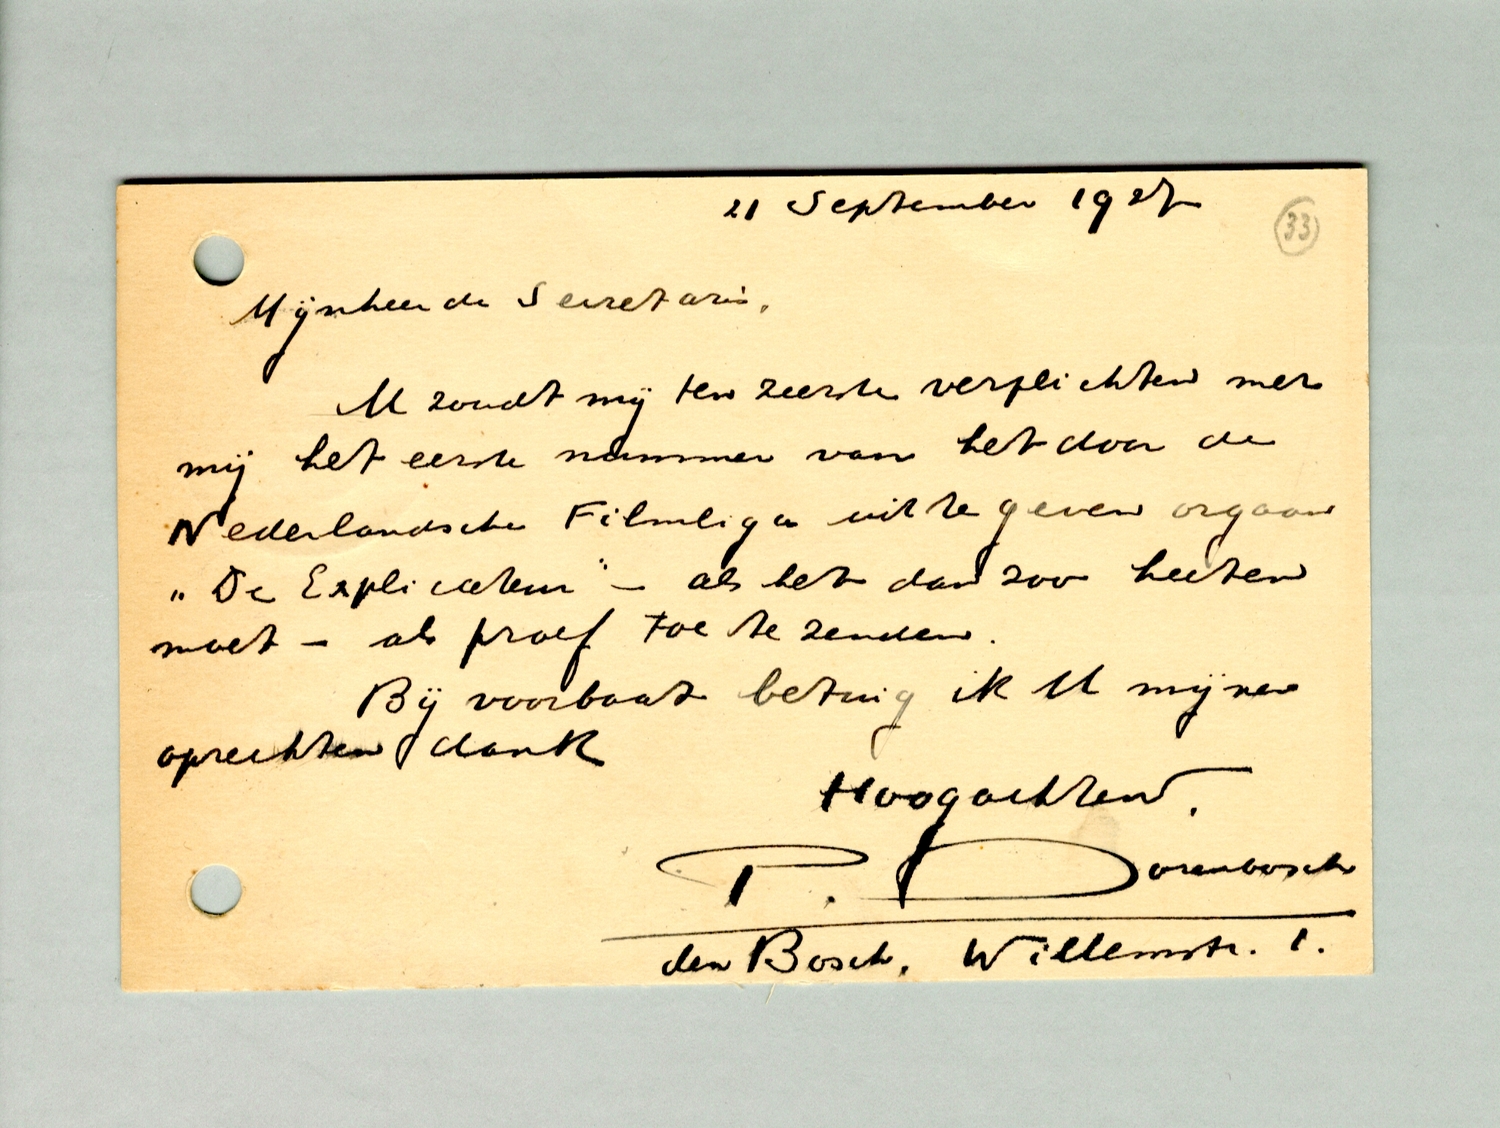 21 September 1927
33
Mijnheer de Secretaris,
U zoudt mij ten zeerste verplichten met
mij het eerste nummer van het door de
Nederlandsche Filmliga uit te geven orgaan
„De Explicateur" – als het dan zoo heeten
moet – als proef toe te zenden.
Bij voorbaat betuig ik U mijnen
oprechten dank
Hoogachtend,
P. Dorenbosch
den Bosch, Willemstr. 1.